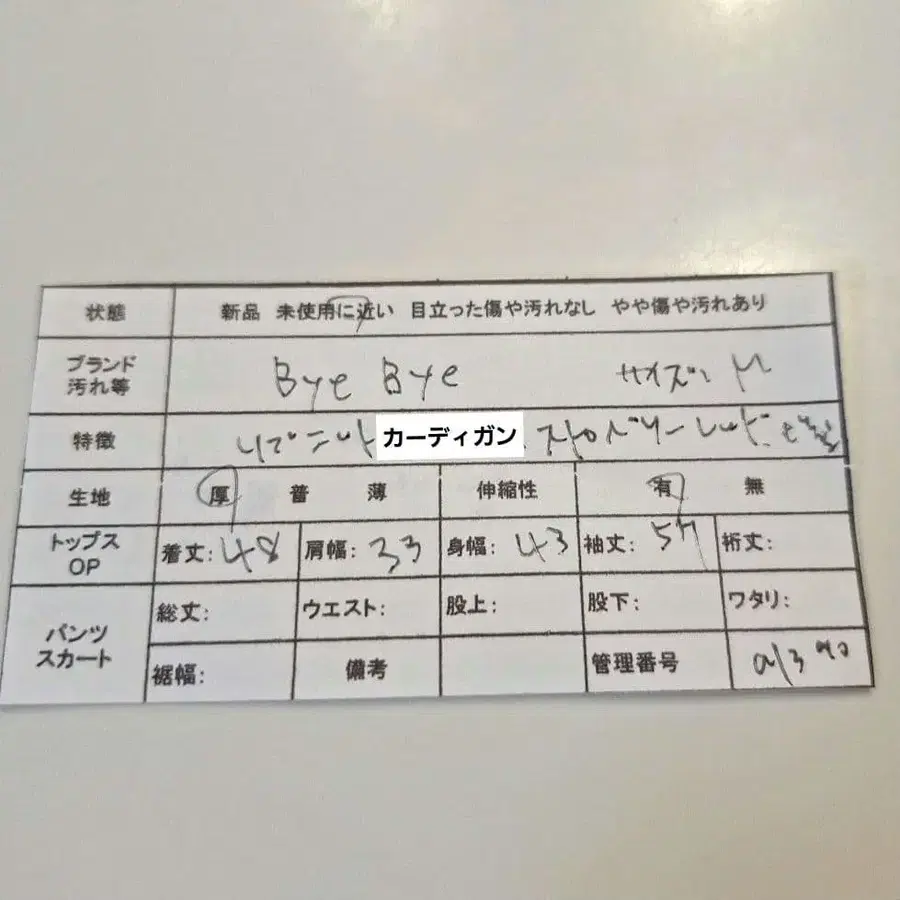 状態 新品 未使用に近い 目立った傷や汚れなし やや傷や汚れあり
ブランド 汚れ等 Bye Bye サイズ: M
特徴 リブニット カーディガン ストロベリーレッド
生地 厚 普 薄 伸縮性 有 無
トップス OP 着丈: 48 肩幅: 33 身幅: 43 袖丈: 57 裄丈:
パンツ スカート 総丈: ウエスト: 股上: 股下: ワタリ:
裾幅: 備考 管理番号